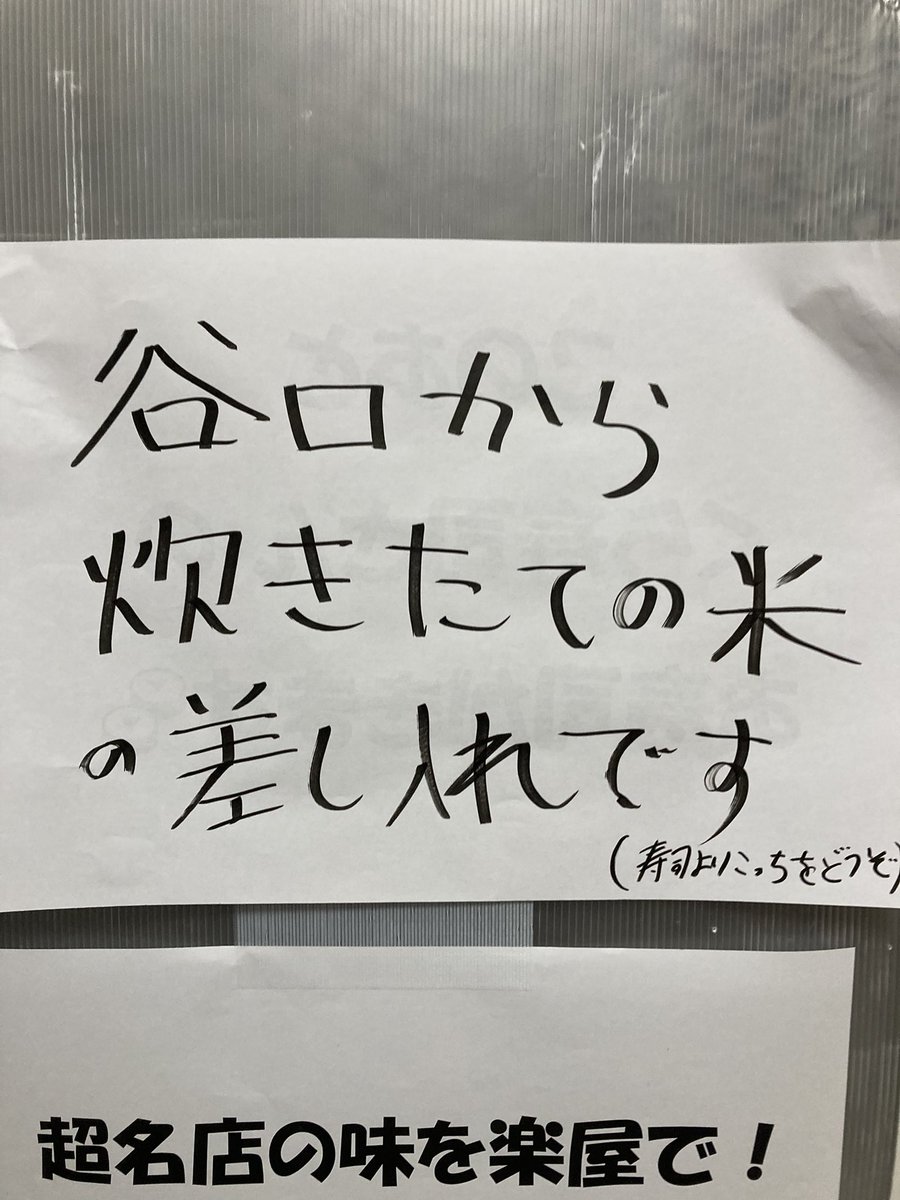 谷口から
炊きたての米
の差し入れです
(寿司よりこっちをどうぞ)
超名店の味を楽屋で！